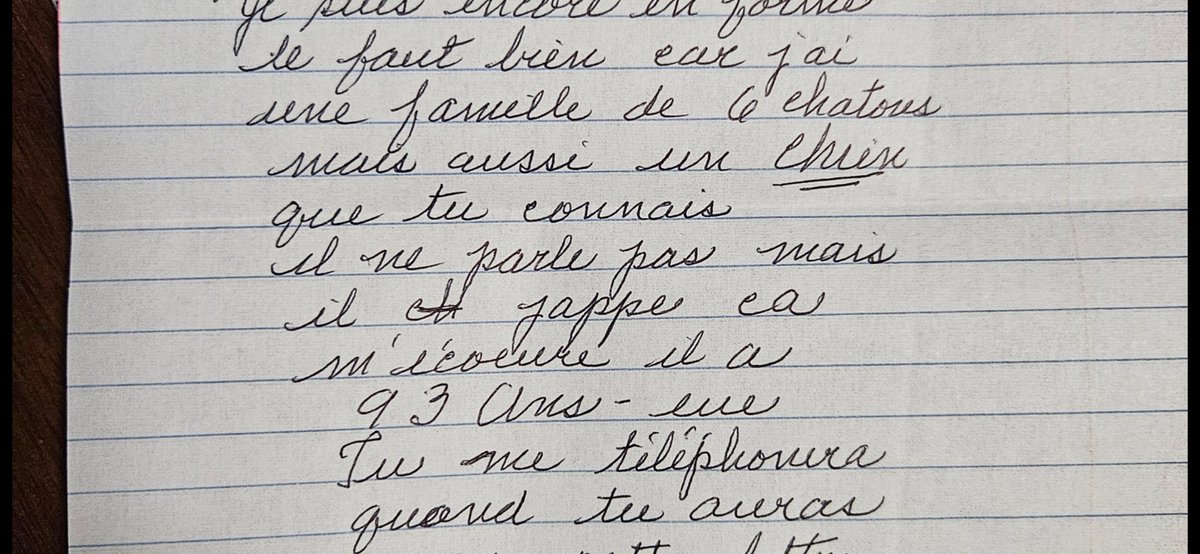 je suis encore en forme
le faut bien car j'ai
une famille de 6 chatons
mais aussi un chien
que tu connais
il ne parle pas mais
il jappe ca
m'écoeure il a
93 Ans - eue
Tu me téléphonera
quand tu auras